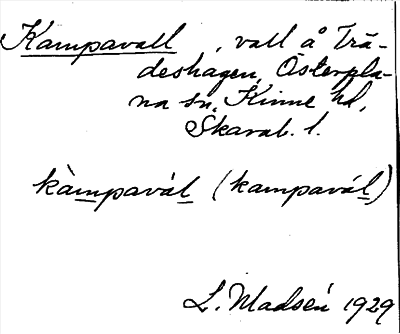 Kampavall , vall å Trä-
deshagen, Österpla-
na sn, Kinne hd,
Skarab. l.
kàmpavál (kampavál)
L. Madsén 1929